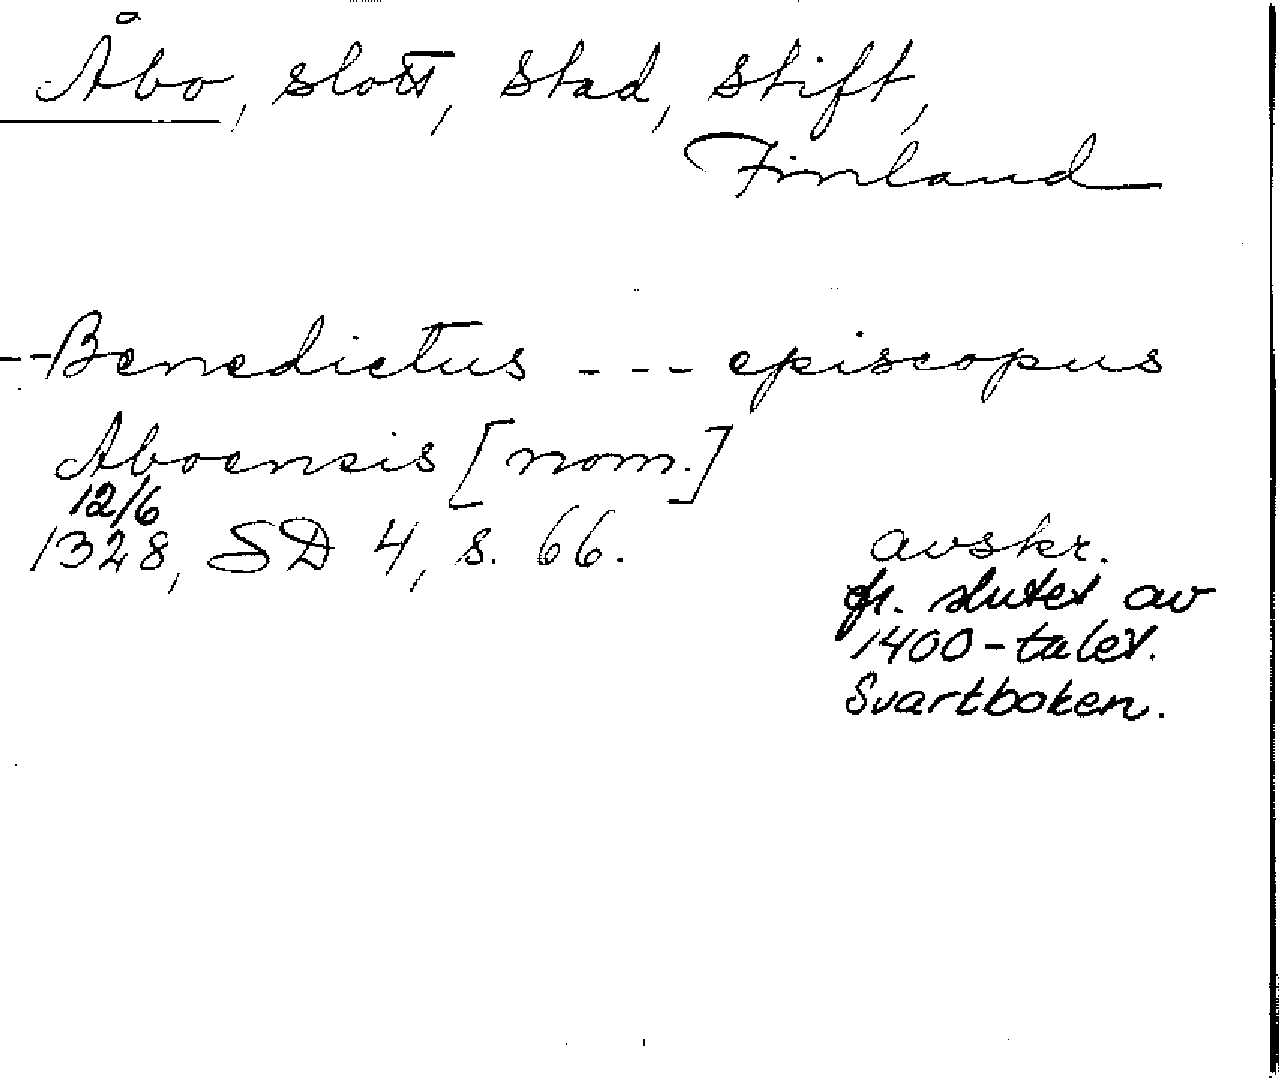 Åbo, slott, stad, stift,
Finland
--Benedictus --- episcopus
Aboensis [nom.]
12/6
1328, SD 4, s. 66.
avskr.
fr. slutet av
1400-talet.
Svartboken.